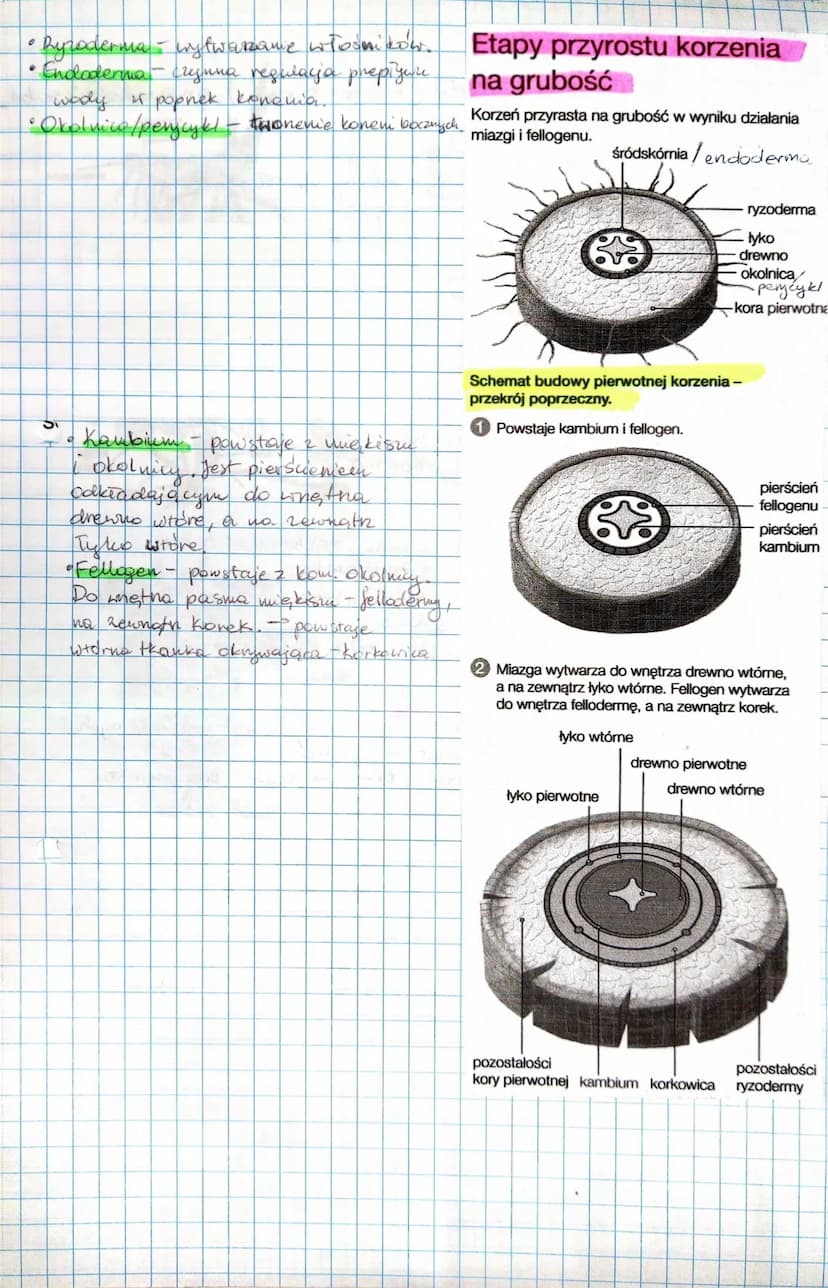 • Ryzoderma – wytwarzanie włośników.
• Endoderma – czynna regulacja przepływu
wody w poprzek korzenia.
• Okolnica/perycykl – tworzenie korzeni bocznych.
Etapy przyrostu korzenia
na grubość
Korzeń przyrasta na grubość w wyniku działania
miazgi i fellogenu.
śródskórnia / endoderma
ryzoderma
łyko
drewno
okolnica/
perycykl
kora pierwotna
Schemat budowy pierwotnej korzenia –
przekrój poprzeczny.
• Kambium – powstaje z miękiszu
i okolnicy. Jest pierścieniem
odkładającym do wnętrza
drewno wtórne, a na zewnątrz
łyko wtórne.
• Fellogen – powstaje z kom. okolnicy.
Do wnętrza pasma miękiszu – fellodermy,
na zewnątrz korek. → powstaje
wtórna tkanka okrywająca – korkowica
1 Powstaje kambium i fellogen.
pierścień
fellogenu
pierścień
kambium
2 Miazga wytwarza do wnętrza drewno wtórne,
a na zewnątrz łyko wtórne. Fellogen wytwarza
do wnętrza fellodermę, a na zewnątrz korek.
łyko wtórne
drewno pierwotne
łyko pierwotne
drewno wtórne
pozostałości
kory pierwotnej
kambium
korkowica
pozostałości
ryzodermy